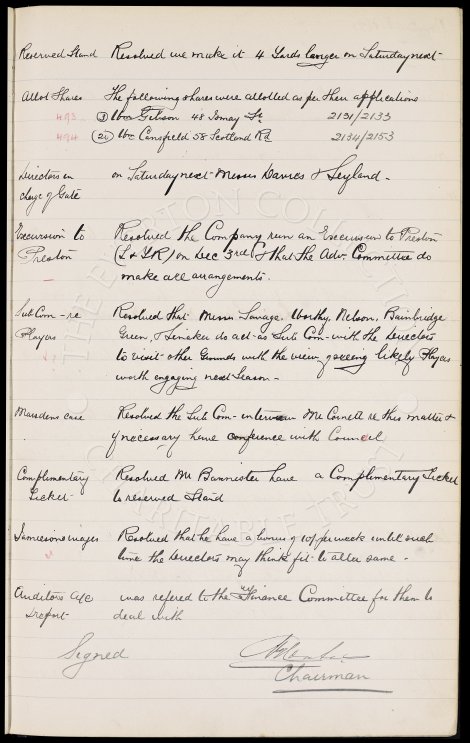 Reserved Stand Resolved we make it 4 Yards longer on Saturday next
Allot Shares The following shares were allotted as per their applications
493 (3) Wm Gibson 48 St. 2131/2133
494 (20) Wm Cansfield 58 Scotland Rd 2134/2153
Directors in on Saturday next Messrs Davies & Leyland.
charge of Gate
Excursion to Resolved the Company run an Excursion to Preston
Preston (L & YR) on Dec 3rd & that the Adv. Committee do
make all arrangements.
Sub Com - re Resolved that Messrs Savage, Worthy, Nelson, Bainbridge
Players Green, & do act as Sub Com - with the Directors
to visit other Grounds with the view of seeing likely Players
worth engaging next Season -
Marsdens case Resolved the Sub Com - interview Mr Cornett re this matter &
if necessary have conference with Council
Complimentary Resolved Mr Bannister have a Complimentary Ticket
Ticket to reserved Stand
Jamiesons wages Resolved that he have a bonus of 10/- per week until such
time the Directors may think fit to alter same -
Auditors a/c was refered to the Finance Committee for them to
& report deal with
Signed
Chairman
THE EVERTON COLLECTION
CHARITABLE TRUST